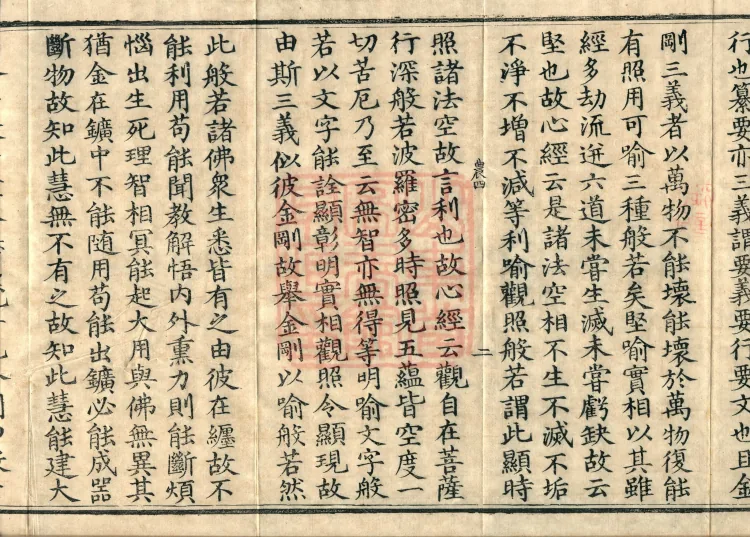 行也纂要亦三義謂要義要行要文也且金
剛三義者以萬物不能壞能壞於萬物復能
有照用可喻三種般若矣堅喻實相以其雖
經多劫流迸六道未甞生滅未甞虧缺故云
堅也故心經云是諸法空相不生不滅不垢
不淨不增不減等利喻觀照般若謂此顯時
農四
二
照諸法空故言利也故心經云觀自在菩薩
行深般若波羅密多時照見五蘊皆空度一
切苦厄乃至云無智亦無得等明喻文字般
若以文字能詮顯彰明實相觀照令顯現故
由斯三義似彼金剛故舉金剛以喻般若然
此般若諸佛衆生悉皆有之由彼在纏故不
能利用苟能聞教解悟内外熏力則能斷煩
惱出生死理智相冥能起大用與佛無異其
猶金在鑛中不能随用苟能出鑛必能成器
斷物故知此慧無不有之故知此慧能建大